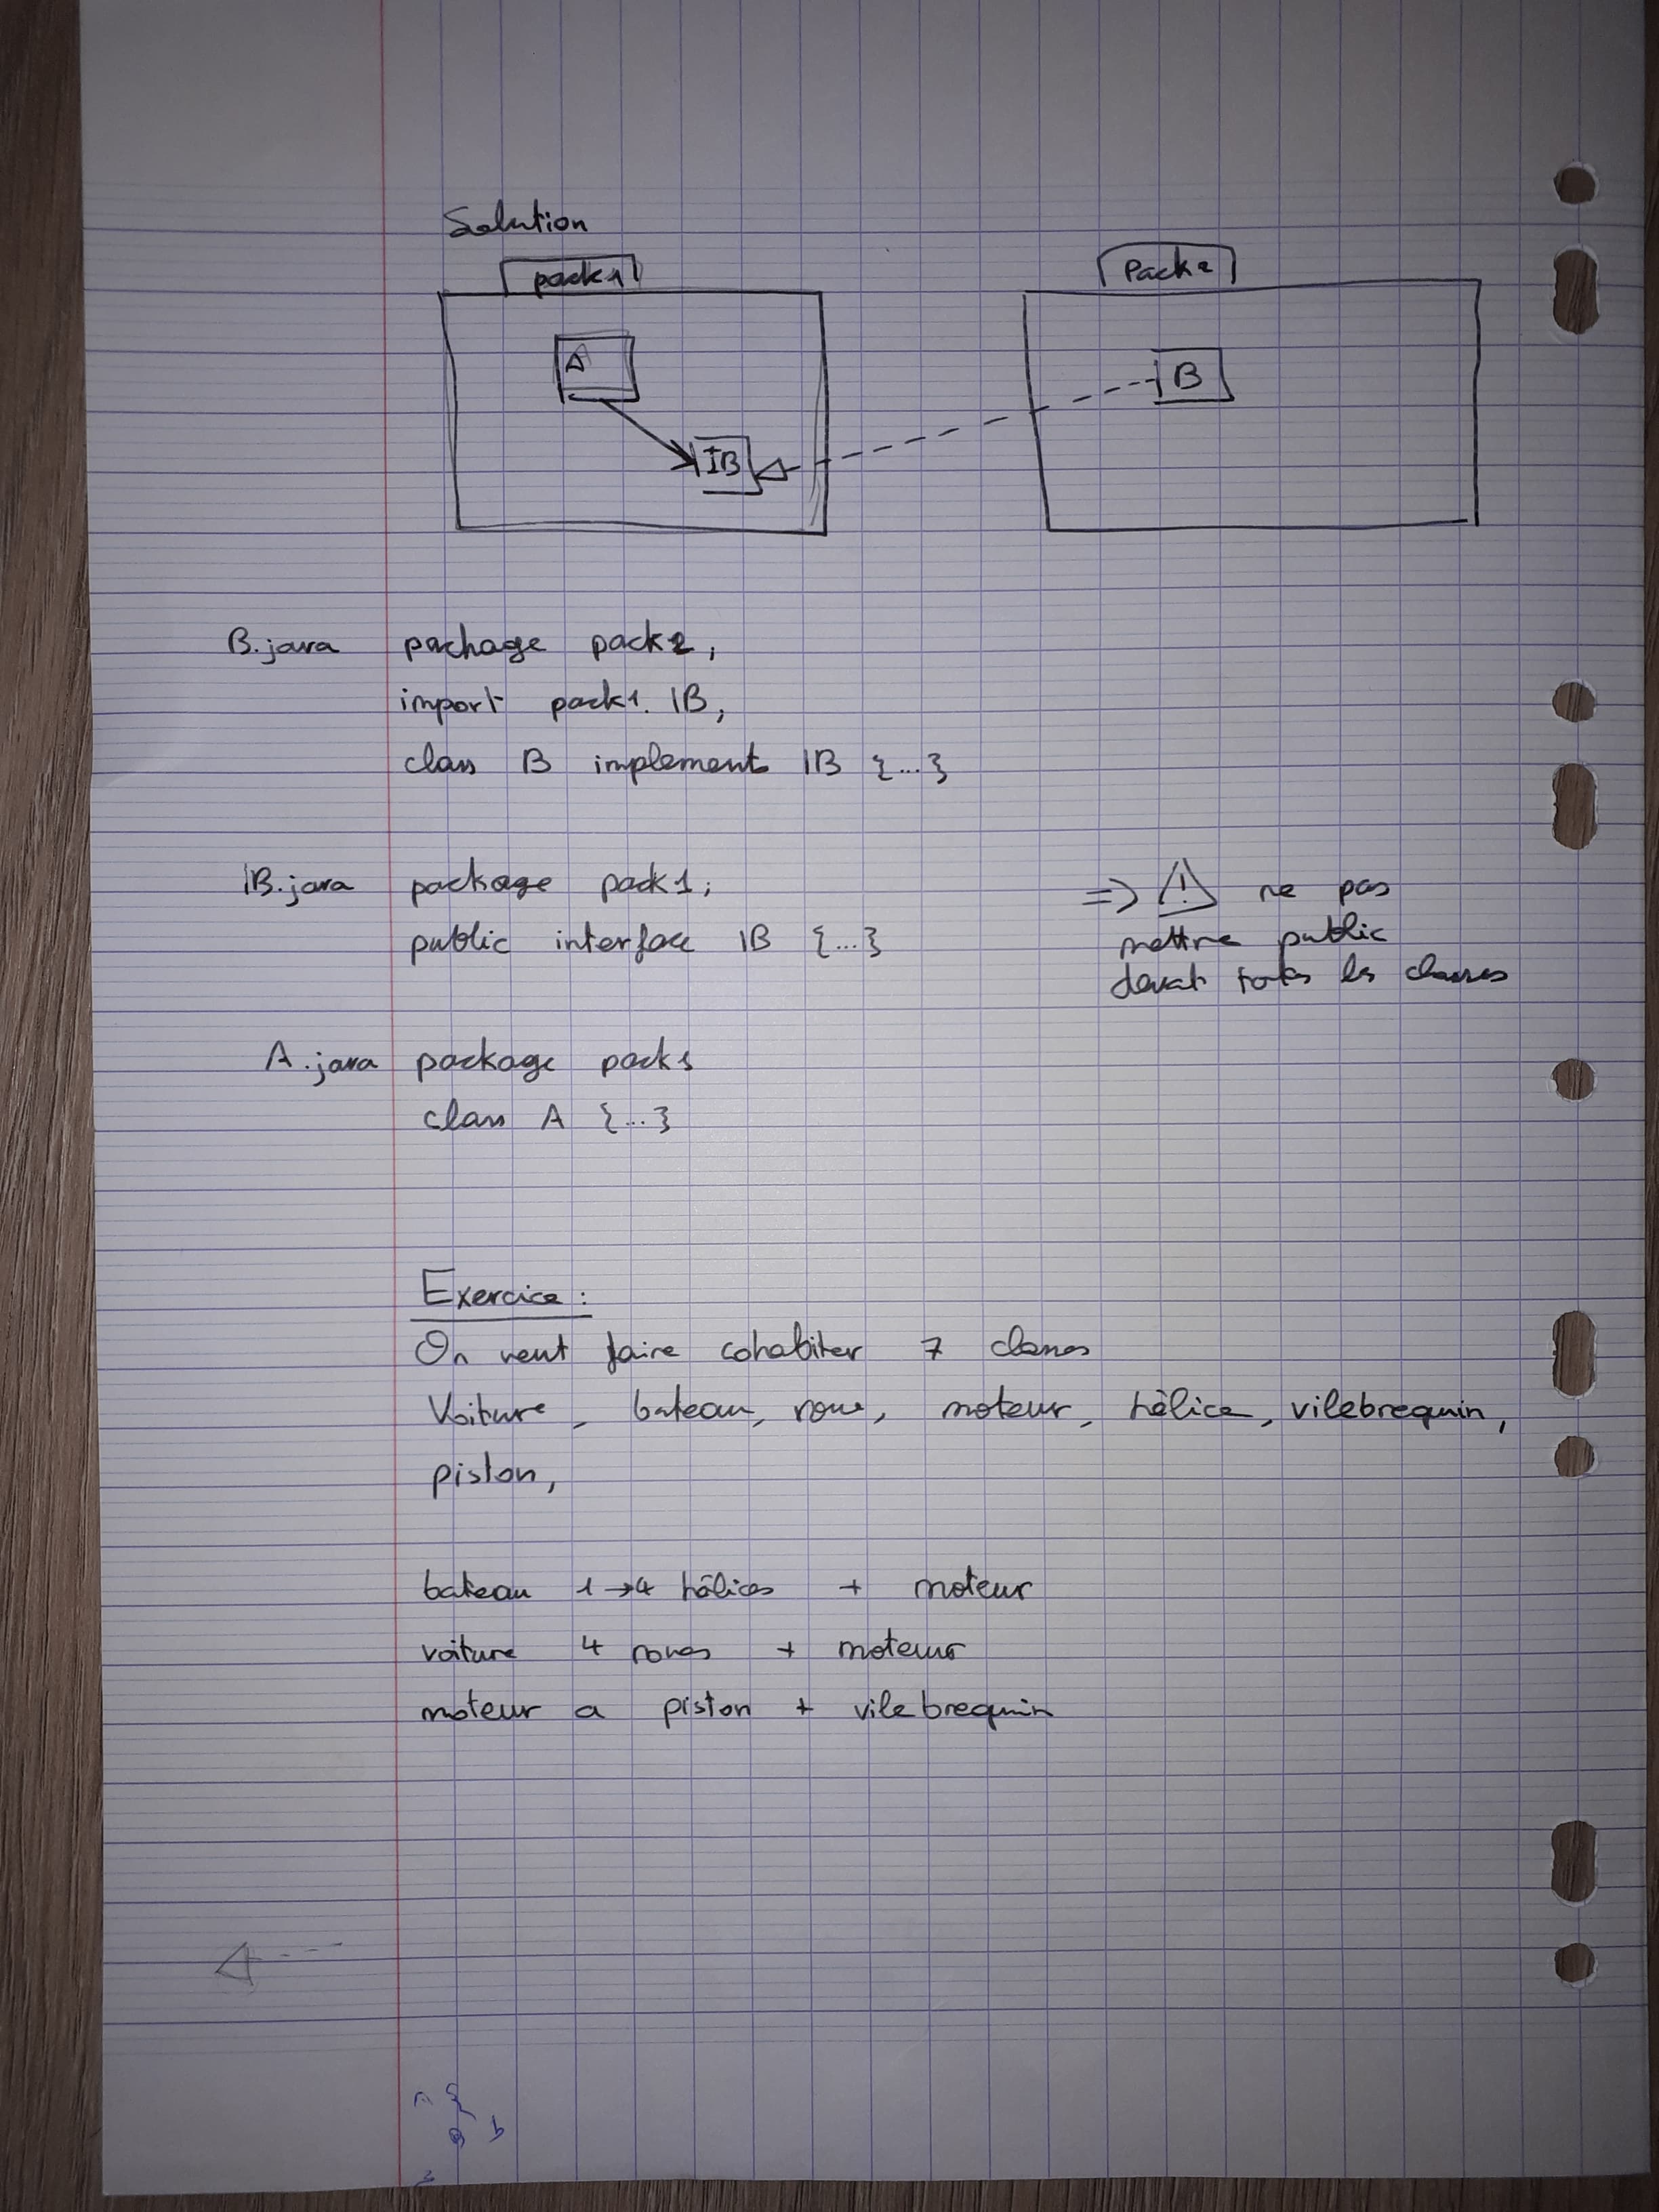 Solution
pack1 Pack2
A
B
IB
B.java package pack2;
import pack1.IB;
class B implement IB {...}
IB.java package pack1; => ! ne pas
public interface IB {...} mettre public
devat toutes les classes
A.java package pack1
class A {...}
Exercice :
On veut faire cohabiter 7 classes
Voiture, bateau, roue, moteur, hélice, vilebrequin,
piston,
bateau 1→4 hélices + moteur
voiture 4 roues + moteur
moteur a piston + vilebrequin